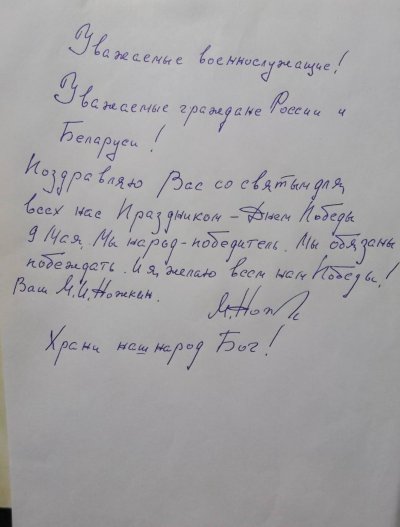 Уважаемые военнослужащие!
Уважаемые граждане России и
Беларуси!
Поздравляю Вас со святым для
всех нас Праздником - Днем Победы
9 Мая. Мы народ-победитель. Мы обязаны
побеждать. И я желаю всем нам Победы!
Ваш М.И. Ножкин. М.Нож
Храни наш народ Бог!